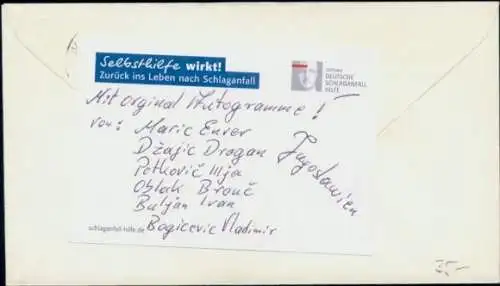 Selbsthilfe wirkt!
Zurück ins Leben nach Schlaganfall
STIFTUNG
DEUTSCHE
SCHLAGANFALL
HILFE
Mit orginal Autogramme!
von: Maric Enver
Džajic Dragan
Petković Ilija
Oblak Branč
Buljan Ivan
Bogicevic Vladimir
Jugoslawien
schlaganfall-hilfe.de
25,-